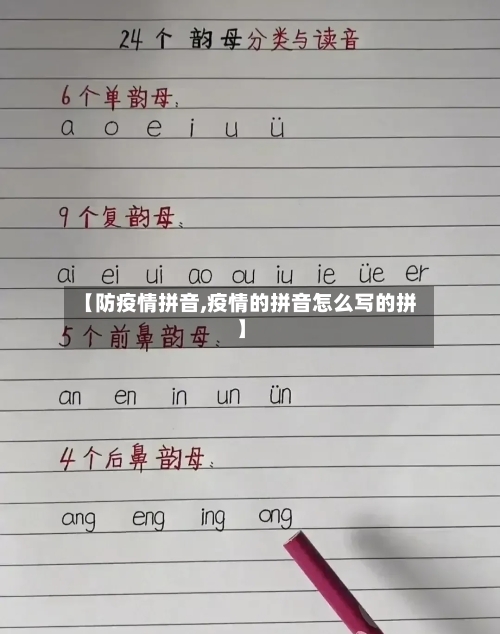 24个 韵母分类与读音
6个单韵母:
a o e i u ü
9个复韵母:
ai ei ui ao ou iu ie üe er
【防疫情拼音,疫情的拼音怎么写的拼
】
5个前鼻韵母:
an en in un ün
4个后鼻韵母:
ang eng ing ong